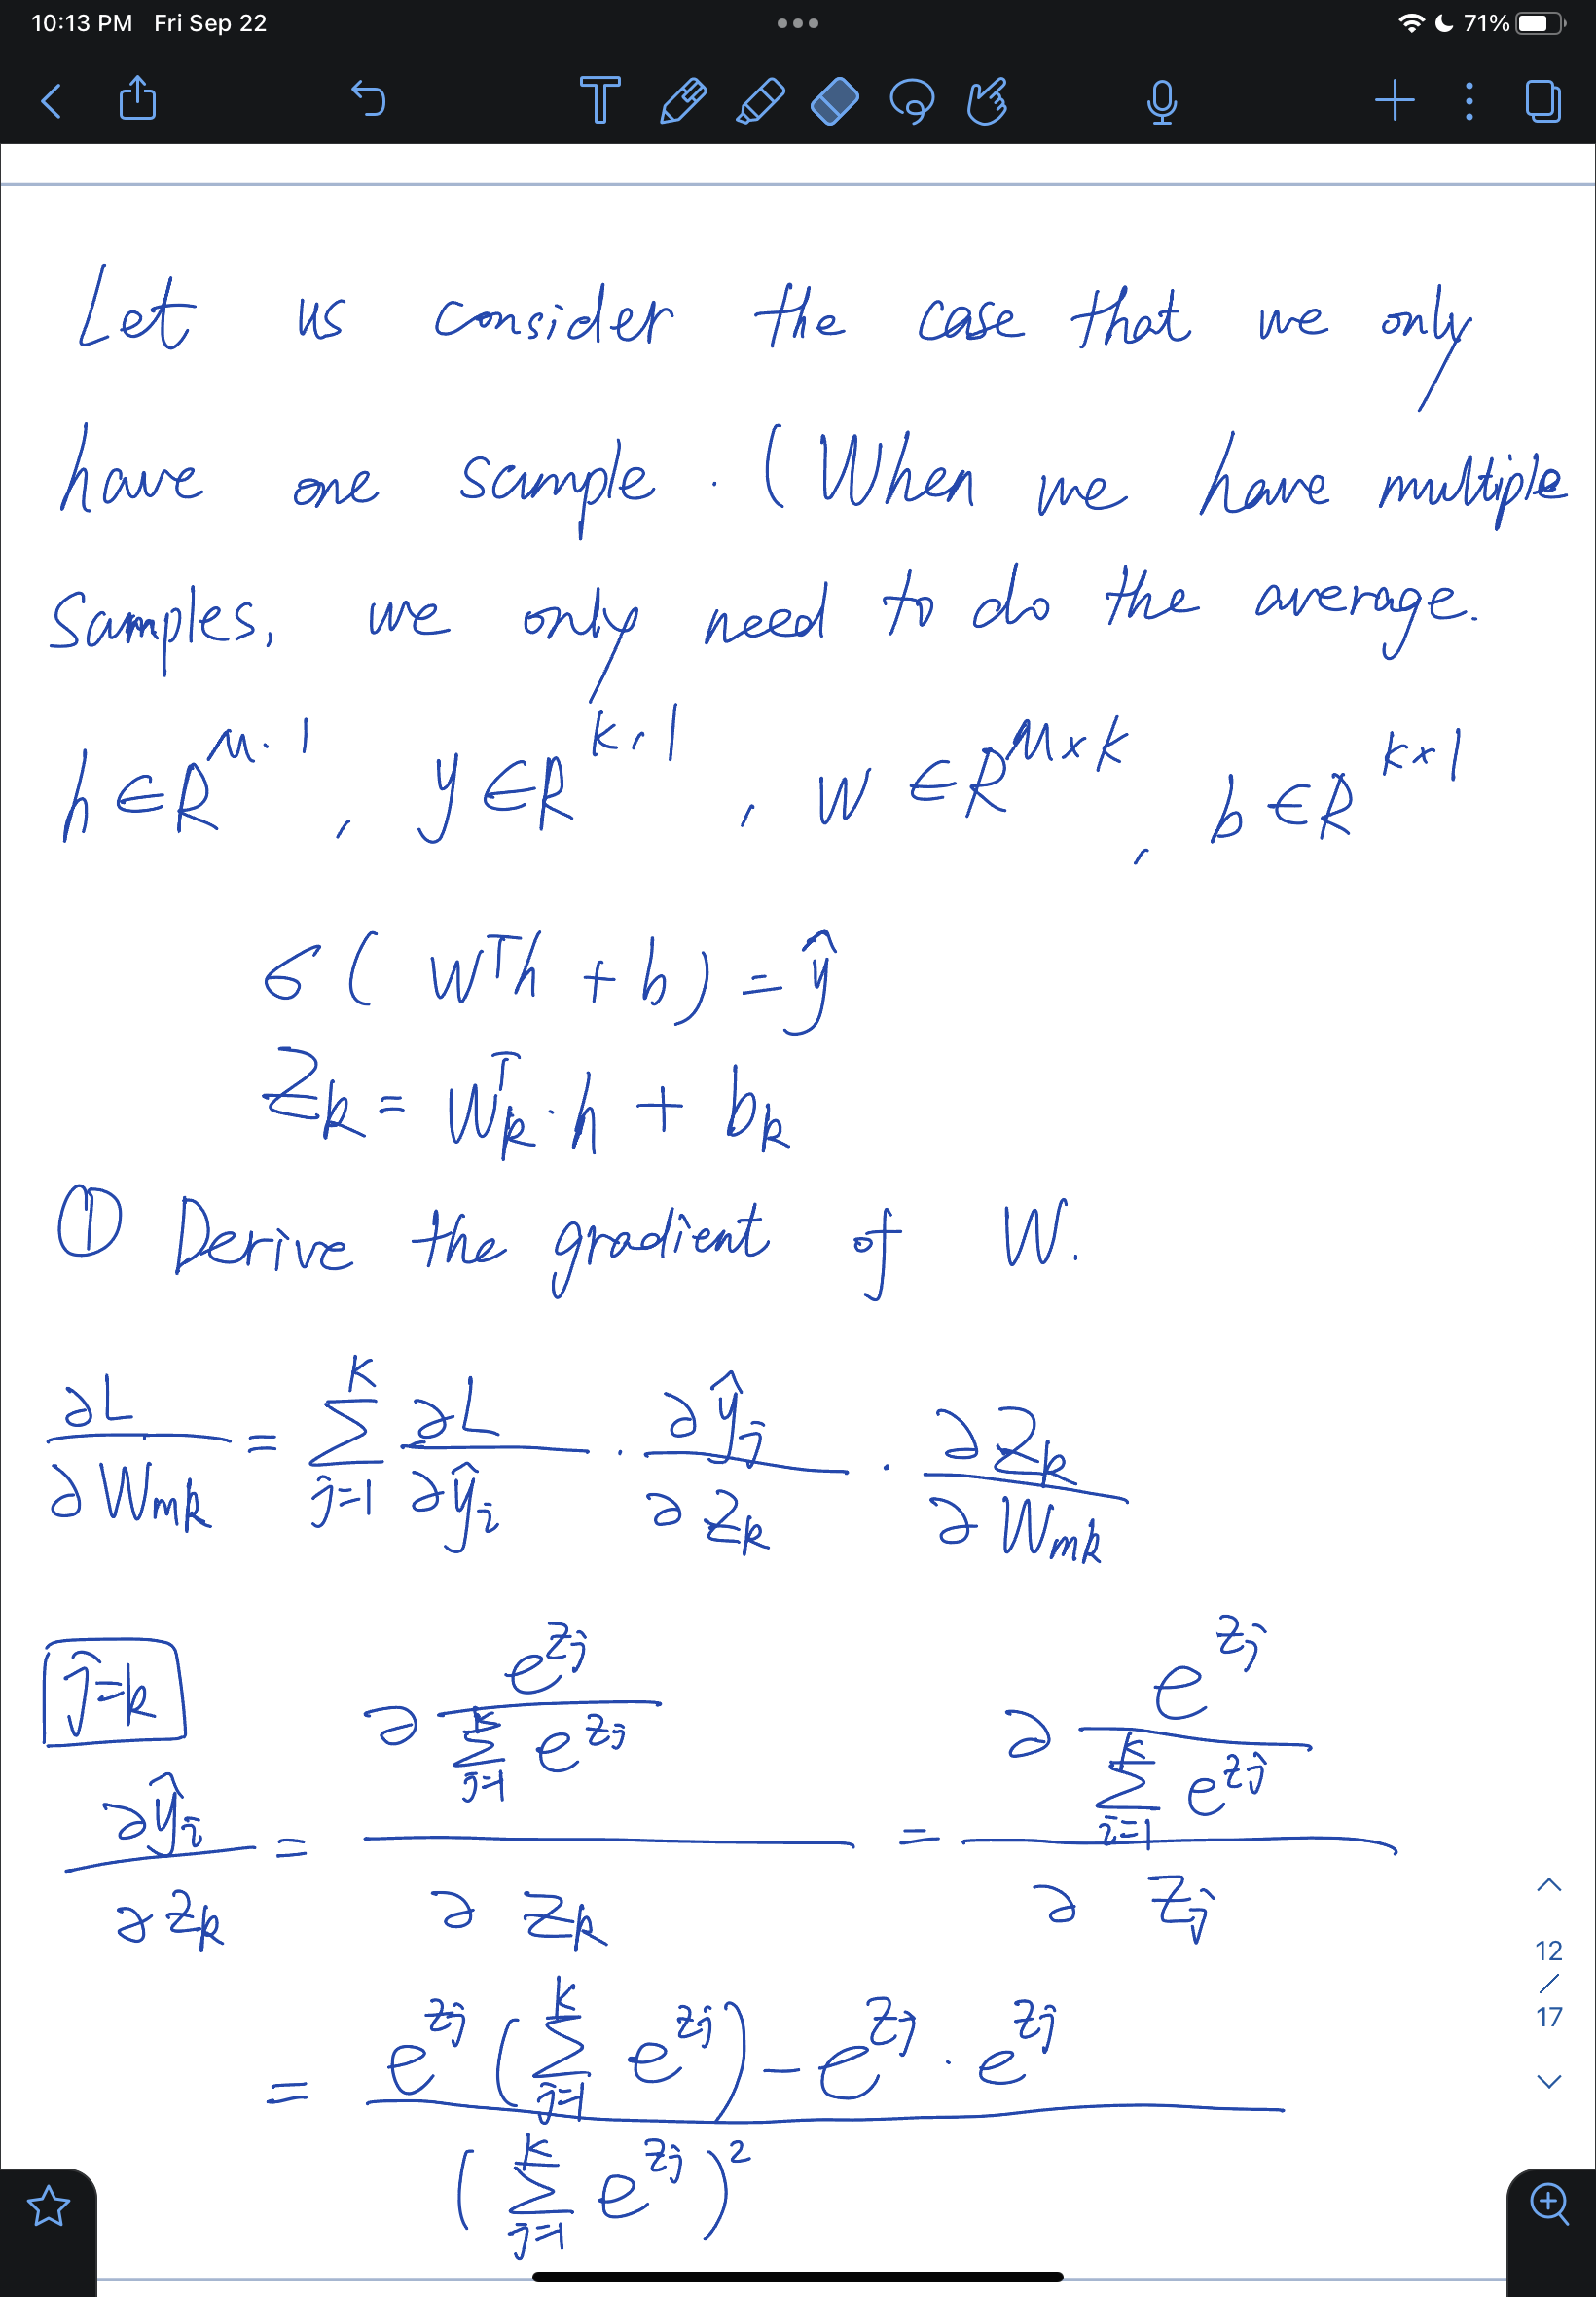 10:13 PM Fri Sep 22
71%
Let us consider the case that we only
have one sample. (When we have multiple
samples, we only need to do the average.
h ∈ R^{M·1}, y ∈ R^{k·1}, W ∈ R^{M×k}, b ∈ R^{k×1}
σ(W^T h + b) = ŷ
Z_k = W_k^T · h + b_k
① Derive the gradient of W.
∂L/∂W_{mk} = Σ_{j=1}^{K} ∂L/∂ŷ_i · ∂ŷ_j/∂Z_k · ∂Z_k/∂W_{mk}
j=k
∂ŷ_i/∂Z_k = ∂(e^{Z_j}/Σ_{j=1}^{k} e^{Z_j})/∂Z_k = ∂(e^{Z_j}/Σ_{i=1}^{k} e^{Z_j})/∂Z_j
= (e^{Z_j}(Σ_{j=1}^{K} e^{Z_j}) − e^{Z_j} · e^{Z_j})/(Σ_{j=1}^{K} e^{Z_j})^2
12
/
17